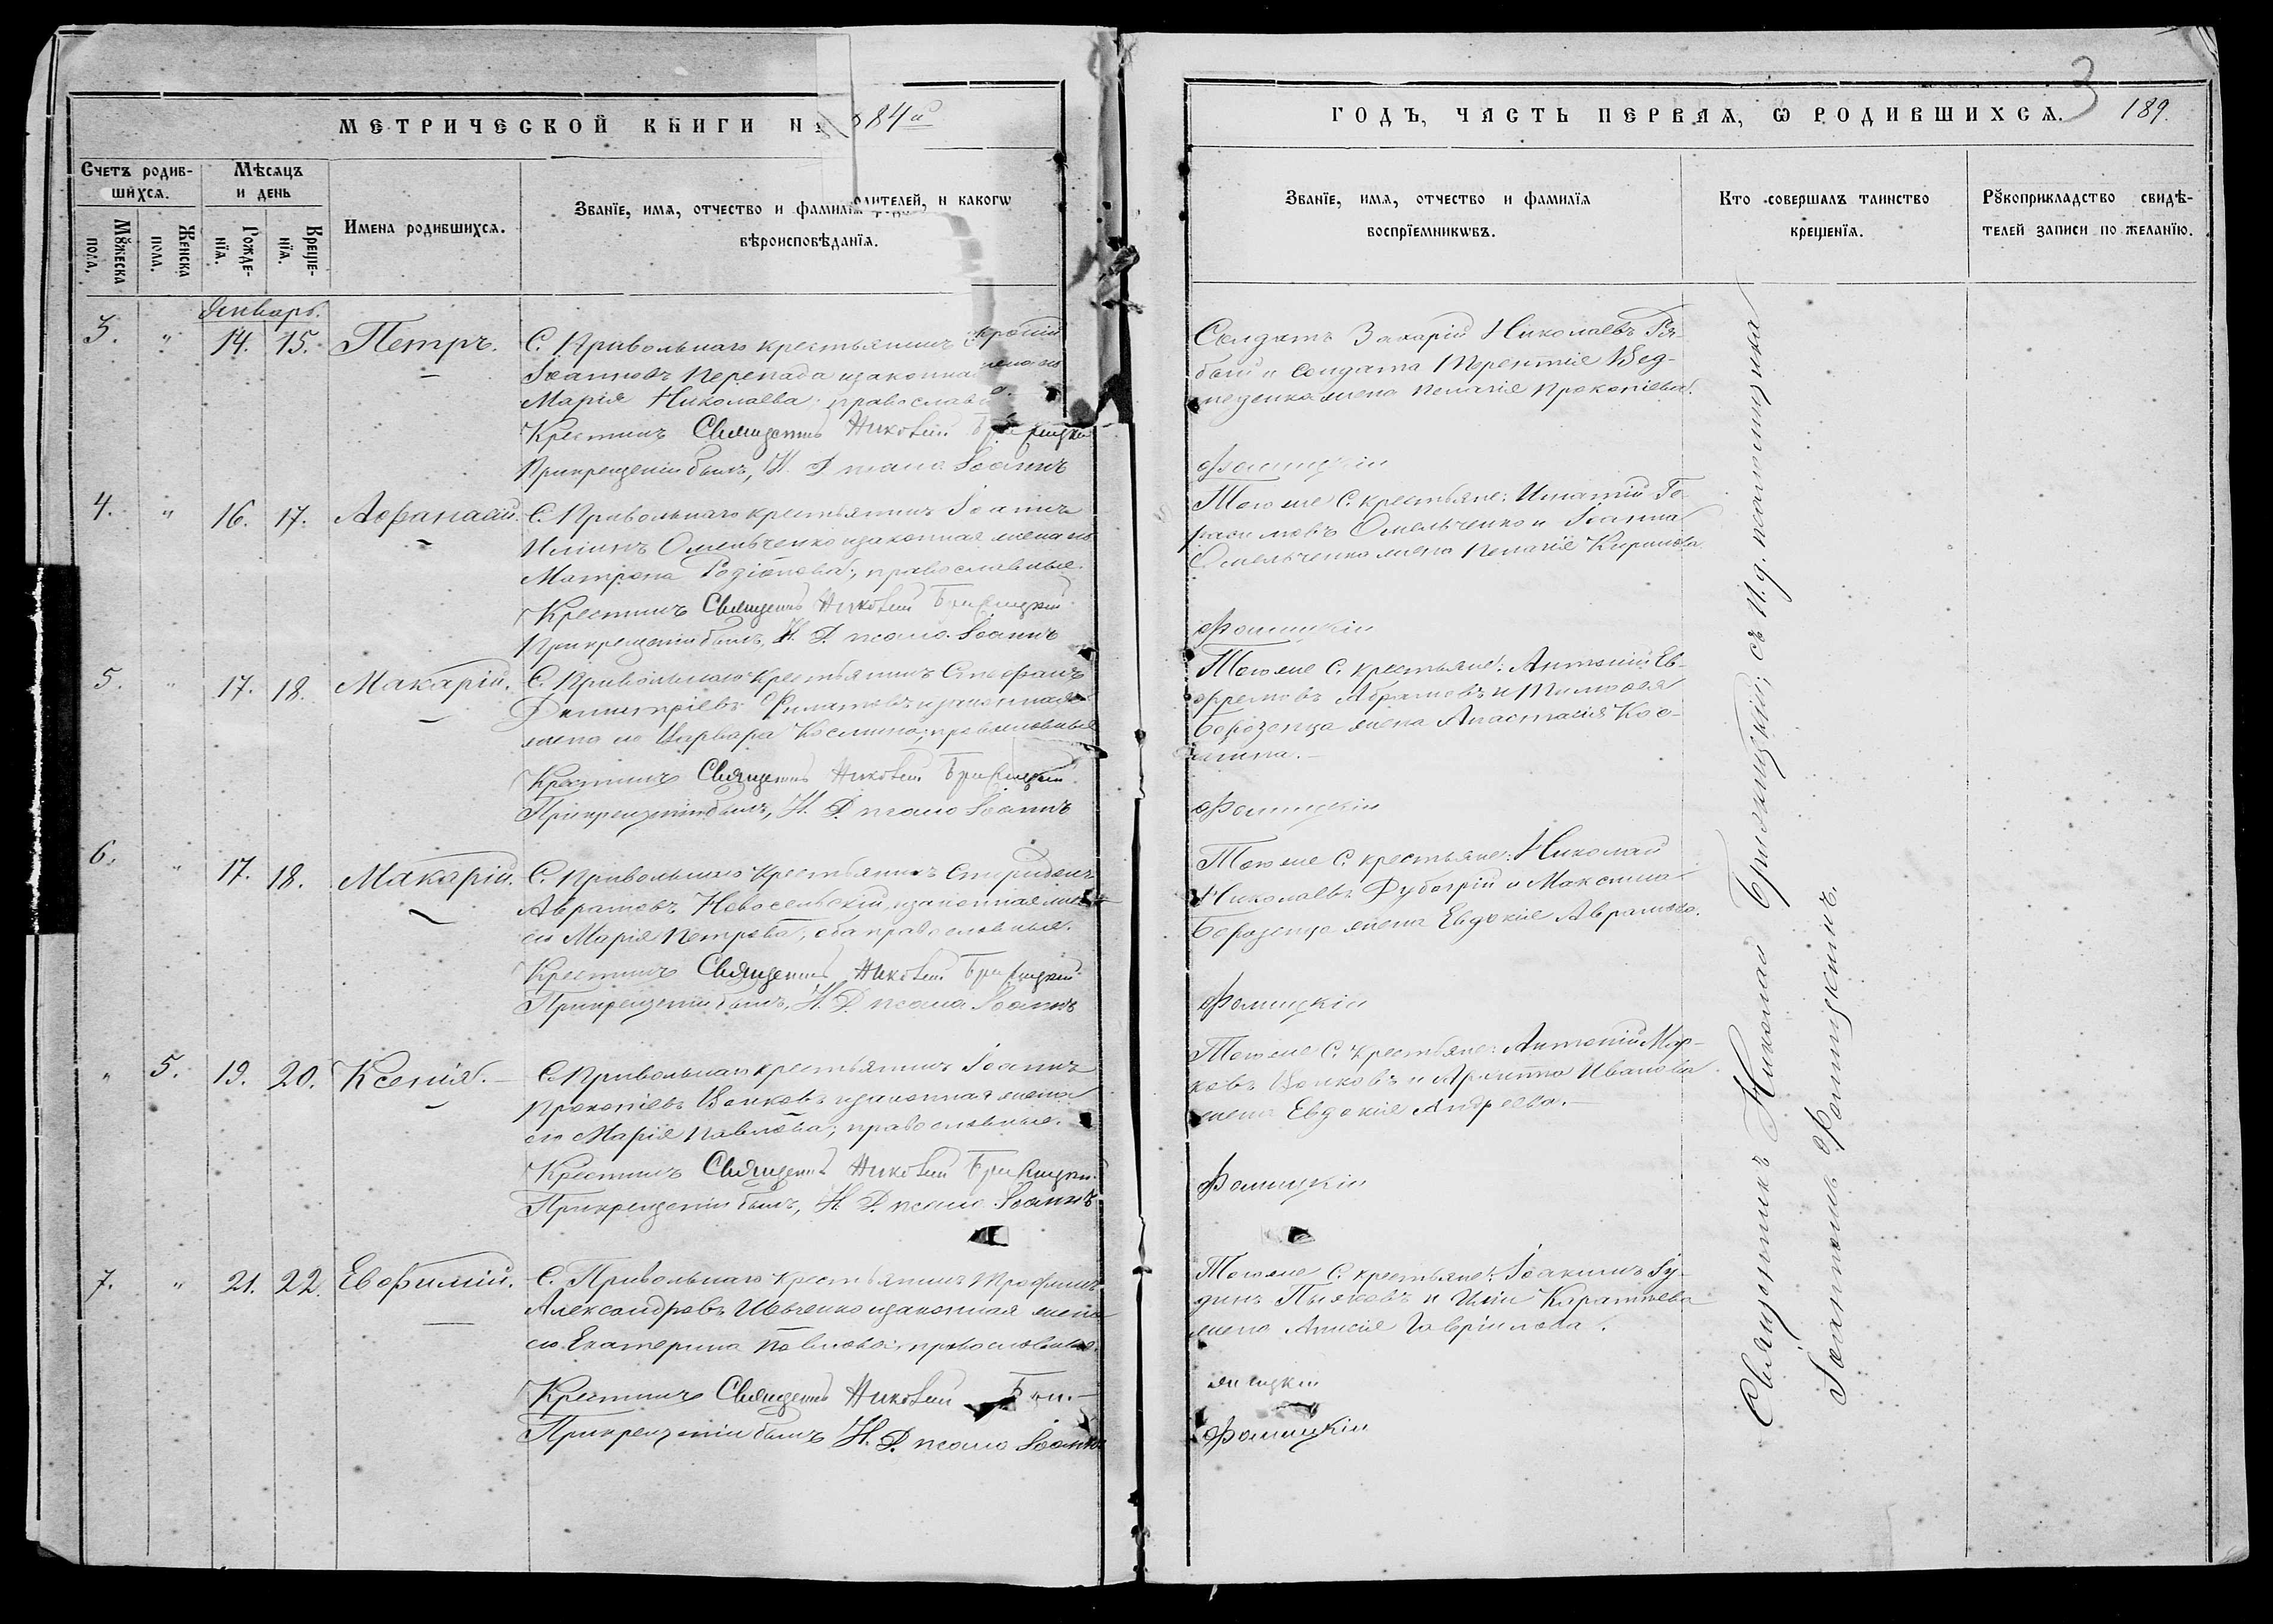 МЕТРИЧЕСКОЙ КНИГИ НА 884й
ГОДЪ, ЧАСТЬ ПЕРВАЯ, Ѡ РОДИВШИХСЯ.
3
189.
Счетъ родив-
шихся.
Мѣсяцъ
и день
Мꙋжеска
пола.
Женска
пола.
Рожде-
нїя.
Креще-
нїя.
Имена родившихся.
Званїе, имя, отчество и фамилїя родителей, и какогѡ
вѣроисповѣданїя.
Званїе, имя, отчество и фамилїя
воспрїемникѡвъ.
Кто совершалъ таинство
крещенїя.
Рꙋкоприкладство свидѣ-
телей записи по желанїю.
Январь.
3. " 14. 15. Петръ.
С. Привольнаго крестьянинъ
Іоанновъ Перепада и законная
Марія Николаева; православ
Крестилъ Священникъ Николай
При крещеніи былъ, И. Д. псало. Іоаннъ
Солдатъ Захарій Николаевъ Ря-
бый и солдата Терентія Вед-
меденка жена Пелагія Прокопіева.
Фомицкій
4. " 16. 17. Аѳанасій.
С. Привольнаго крестьянинъ Іоаннъ
Иліинъ Омельченко и законная жена его
Матрона Родіонова; православные.
Крестилъ Священникъ Николай
При крещеніи былъ, И. Д. псало. Іоаннъ
Того же С. крестьяне: Игнатій Ге-
расимовъ Омельченко и Іоанна
Омельченка жена Пелагія Кирилова
Фомицкій
5. " 17. 18. Макарій.
С. Привольнаго крестьянинъ Стефанъ
Димитріевъ Филатовъ и законная
жена его Варвара Космина; православные
Крестилъ Священникъ Николай
При крещеніи былъ, И. Д. псало Іоаннъ
Того же С. крестьяне: Антоній Ев-
фремовъ Абрамовъ и Тимофея
Борозенца жена Анастасія Кос-
мина.
Фомицкій
6. " 17. 18. Макарій.
С. Привольнаго крестьянинъ Спиридонъ
Аврамовъ Новосельскій и законная жена
его Марія Петрова, оба православные.
Крестилъ Священникъ Николай
При крещеніи былъ, И. Д. псало. Іоаннъ
Того же С. крестьяне: Николай
Николаевъ и Максима
Борозенца жена Евдокія Аврамова.
Фомицкій
" 5. 19. 20. Ксенія.
С. Привольнаго крестьянинъ Іоаннъ
Прокопіевъ Волковъ и законная жена
его Марія Павлова; православные.
Крестилъ Священникъ Николай
При крещеніи былъ, И. Д. псало Іоаннъ
Того же С. крестьяне: Антоній Мар-
ковъ Волковъ и Иванова
жена Евдокія Андреева.
Фомицкій
7. " 21. 22. Евфимій.
С. Привольнаго крестьянинъ Трофимъ
Александровъ Ивченко и законная жена
его Екатерина Павлова; православные.
Крестилъ Священникъ Николай
При крещеніи былъ И. Д. псало Іоаннъ
Того же С. крестьяне: Іоакимъ
и Иліи Каратаева
жена Анисія Гавриилова.
Фомицкій
Священникъ Николай съ И. д. псаломщика
Іоанномъ Фомицкимъ.